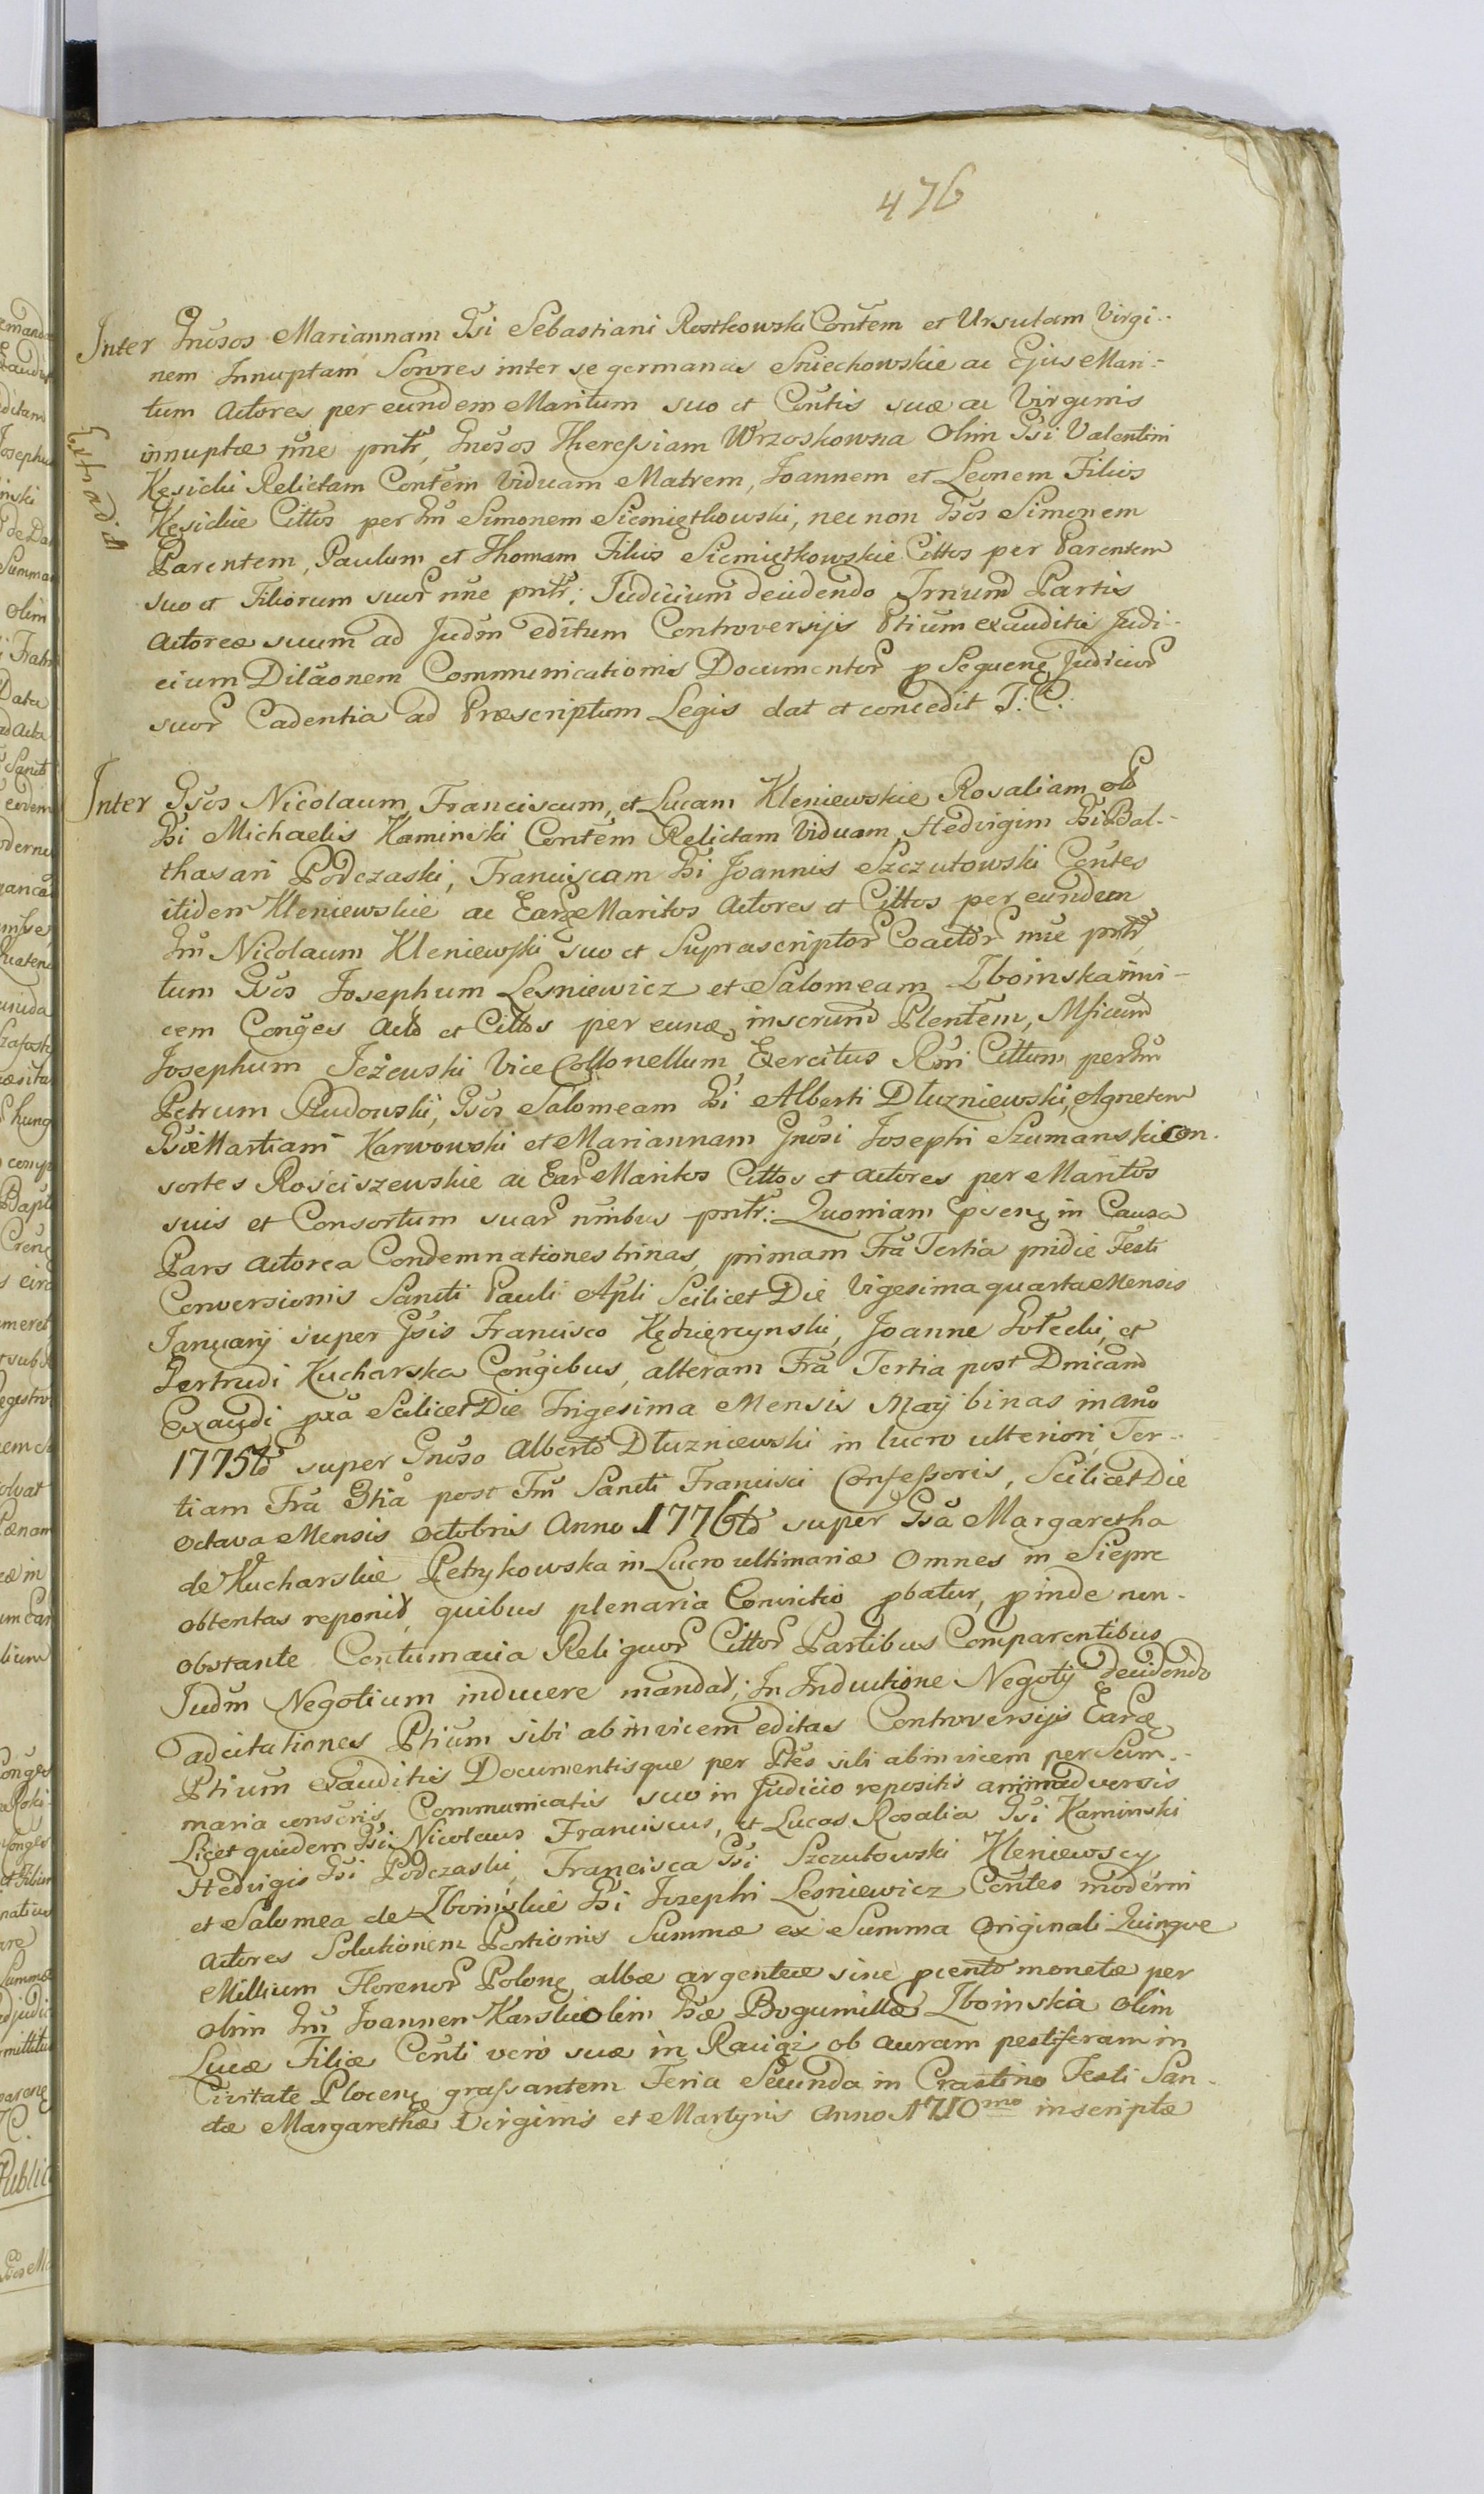 476
Inter Gnusos Mariannam Gsi Sebastiani Rostkowski Contem et Ursulam Virgi-
nem Innuptam Sorores inter se germanas Sniechowskie ac Ejus Mari-
tum Actores per eundem Maritum suo et Contis suæ ac Virginis
innuptæ nne pntr, Gnusos Theressiam Wrzoskowna Olim Gsi Valentini
Kęsicki Relictam Contem Viduam Matrem, Joannem et Leonem Filios
Extradit
Kęsickie Cittos per Gm Simonem Siemiątkowski, nec non Gsos Simonem
Parentem, Paulum et Thomam Filios Siemiątkowskie Cittos per Parentem
suo et Filiorum suor nne pntr: Judicium decidendo Irnum Partis
Actoreæ suum ad Judm editum Controversijs Ptium exauditis Judi-
cium Dilaonem Communicationis Documentor p Sequenę Judicior
suor Cadentia ad Præscriptum Legis dat et concedit J. C.
Inter Gsos Nicolaum, Franciscum, et Lucam Kleniewskie Rosaliam olo
Gsi Michaelis Kaminski Contem Relictam Viduam, Hedvigim Gsi Bal-
thasari Podczaski, Franciscam Gsi Joannis Szczutowski Contes
itidem Kleniewskie ac Earęę Maritos Actores et Cittos per eundem
Gm Nicolaum Kleniewski suo et Suprascriptor Coactor nne pntr
tum Gsos Josephum Lesniewicz et Salomeam Zboinska invi-
cem Conges Acto et Cittos per eunæ inscrund Plentem, Mficum
Josephum Jeżewski Vice Collonellum Exercitus Rni Cittum per Gm
Petrum Rudowski, Gsos Salomeam Gsi Alberti Dłuzniewski, Agnetem
Gsi Martiani Karwowski et Mariannam Gnusi Josephi Szumanski con-
sortes Rościszewskie ac Ear Maritos Cittos et Actores per Maritos
suis et Consortum suar nnibus pntr: Quoniam psenę in Causa
Pars Actorea Condemnationes trinas, primam Fra Tertia pridie Festi
Conversionis Sancti Pauli Apli Scilicet Die Vigesima quarta Mensis
Januarij super Gsis Francisco Kędzierzynski, Joanne Gołecki, et
Gertrudi Kucharska Congibus, alteram Fra Tertia post Dnicam
Exaudi pxa Scilicet Die Trigesima Mensis Maij binas in Ano
1775to super Gnuso Alberto Dłuzniewski in lucro ulteriori, Ter-
tiam Fra 3tia post Fm Sancti Francisci Confessoris, Scilicet Die
octava Mensis Octobris Anno 1776to super Gsa Margaretha
de Kucharskie Petrykowska in Lucro ultimariæ Omnes in Siepre
obtentas reponit, quibus plenaria Convictio pbatur, pinde non-
obstante Contumacia Reliquor Cittor Partibus Comparentibus
Judm Negotium inducere mandat; In Inductione Negotij Decidendo
adcitationes Ptium sibi ab invicem editas Controversijs Earę
Ptium Exauditis Documentisque per Ptes sibi ab invicem per Sum-
maria conseris Communicatis suo in Judicio repositis animadversis
Licet quidem Gsi Nicolaus Franciscus, et Lucas Rosalia Gsi Kaminski
Hedvigis Gsi Podczaski, Francisca Gsi Szczutowski Kleniewscy
et Salomea de Zboinskie Gsi Josephi Lesniewicz Contes moderni
Actores Solutionem Portionis Summæ ex Summa Originali Quinque
Millium Florenor Polonę albæ argenteæ sine pcento monetæ per
olim Gm Joannem Karski olim Gsæ Bogumillæ Zboinska olim
Lucæ Filiæ Conti vero suæ in Raciąż ob auram pestiferam in
Civitate Plocenę grassantem Feria Secunda in Crastino Festi San-
ctæ Margarethæ Virginis et Martyris Anno 1710mo inscriptæ